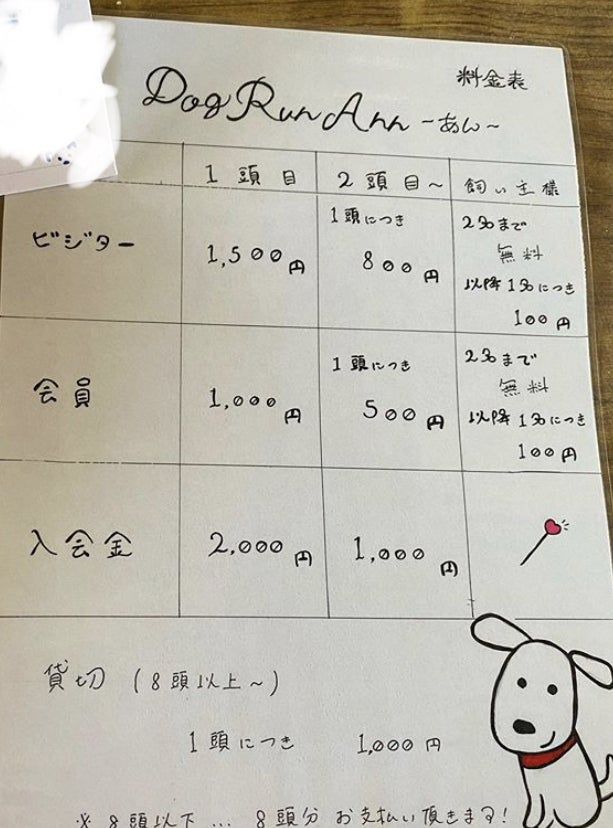 料金表
Dog Run Ann ~あん~
1頭目 2頭目~ 飼い主様
ビジター 1,500円 1頭につき 800円 2名まで 無料 以降1名につき 100円
会員 1,000円 1頭につき 500円 2名まで 無料 以降1名につき 100円
入会金 2,000円 1,000円
貸切 (8頭以上~)
1頭につき 1,000円
※ 8頭以下... 8頭分 お支払い頂きます!